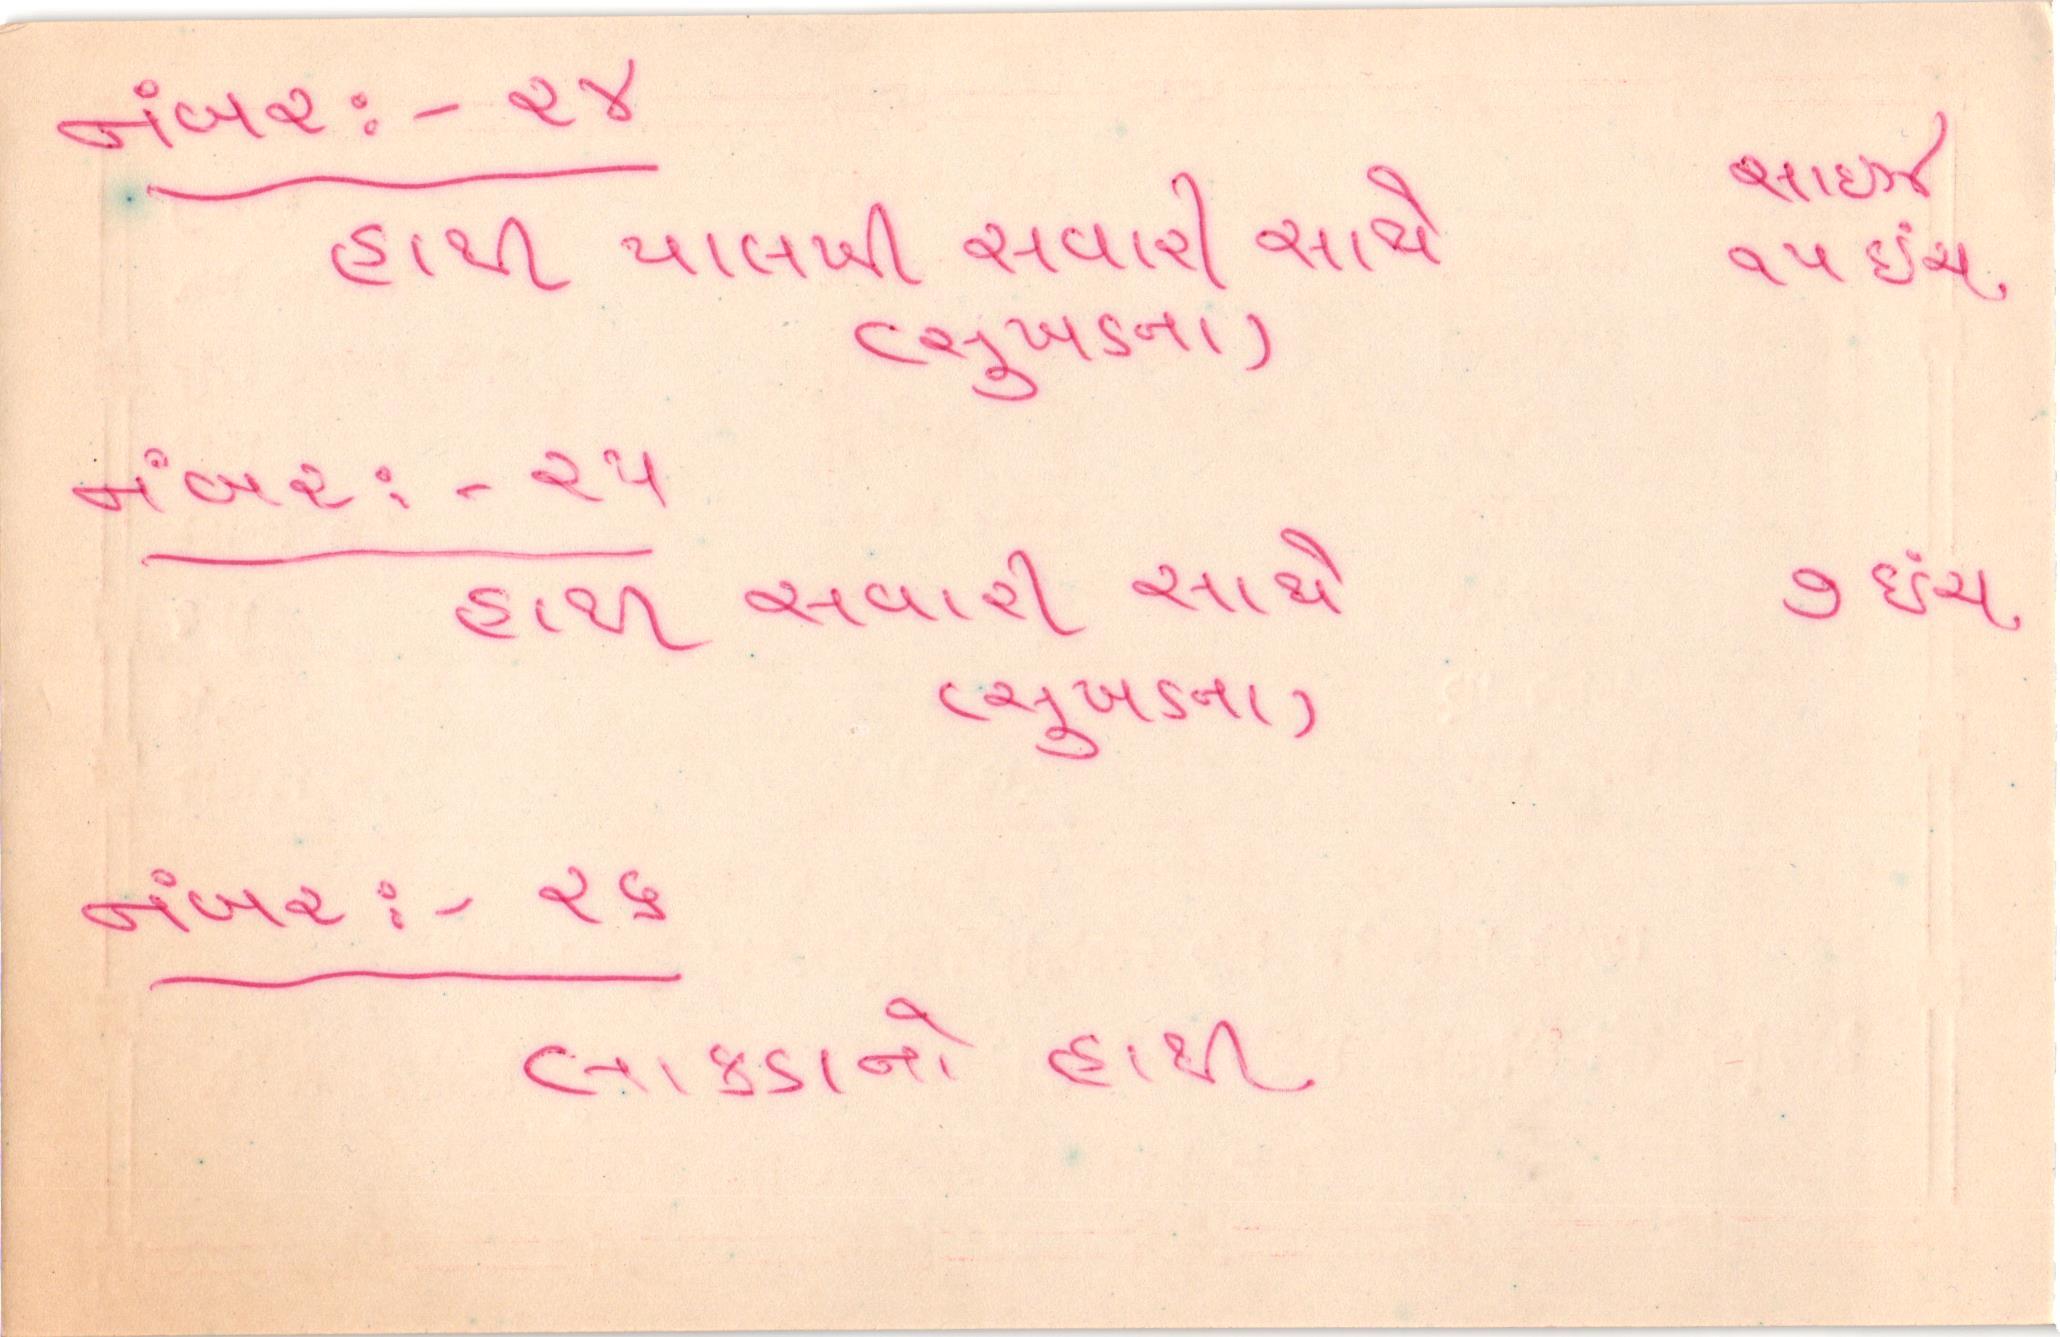 નંબર :- ૨૪
સાઇઝ
હાથી પાલખી સવારી સાથે ૧૫ ઇંચ
(સુખડના)
નંબર :- ૨૫
હાથી સવારી સાથે ૭ ઇંચ
(સુખડના)
નંબર :- ૨૬
લાકડાનો હાથી